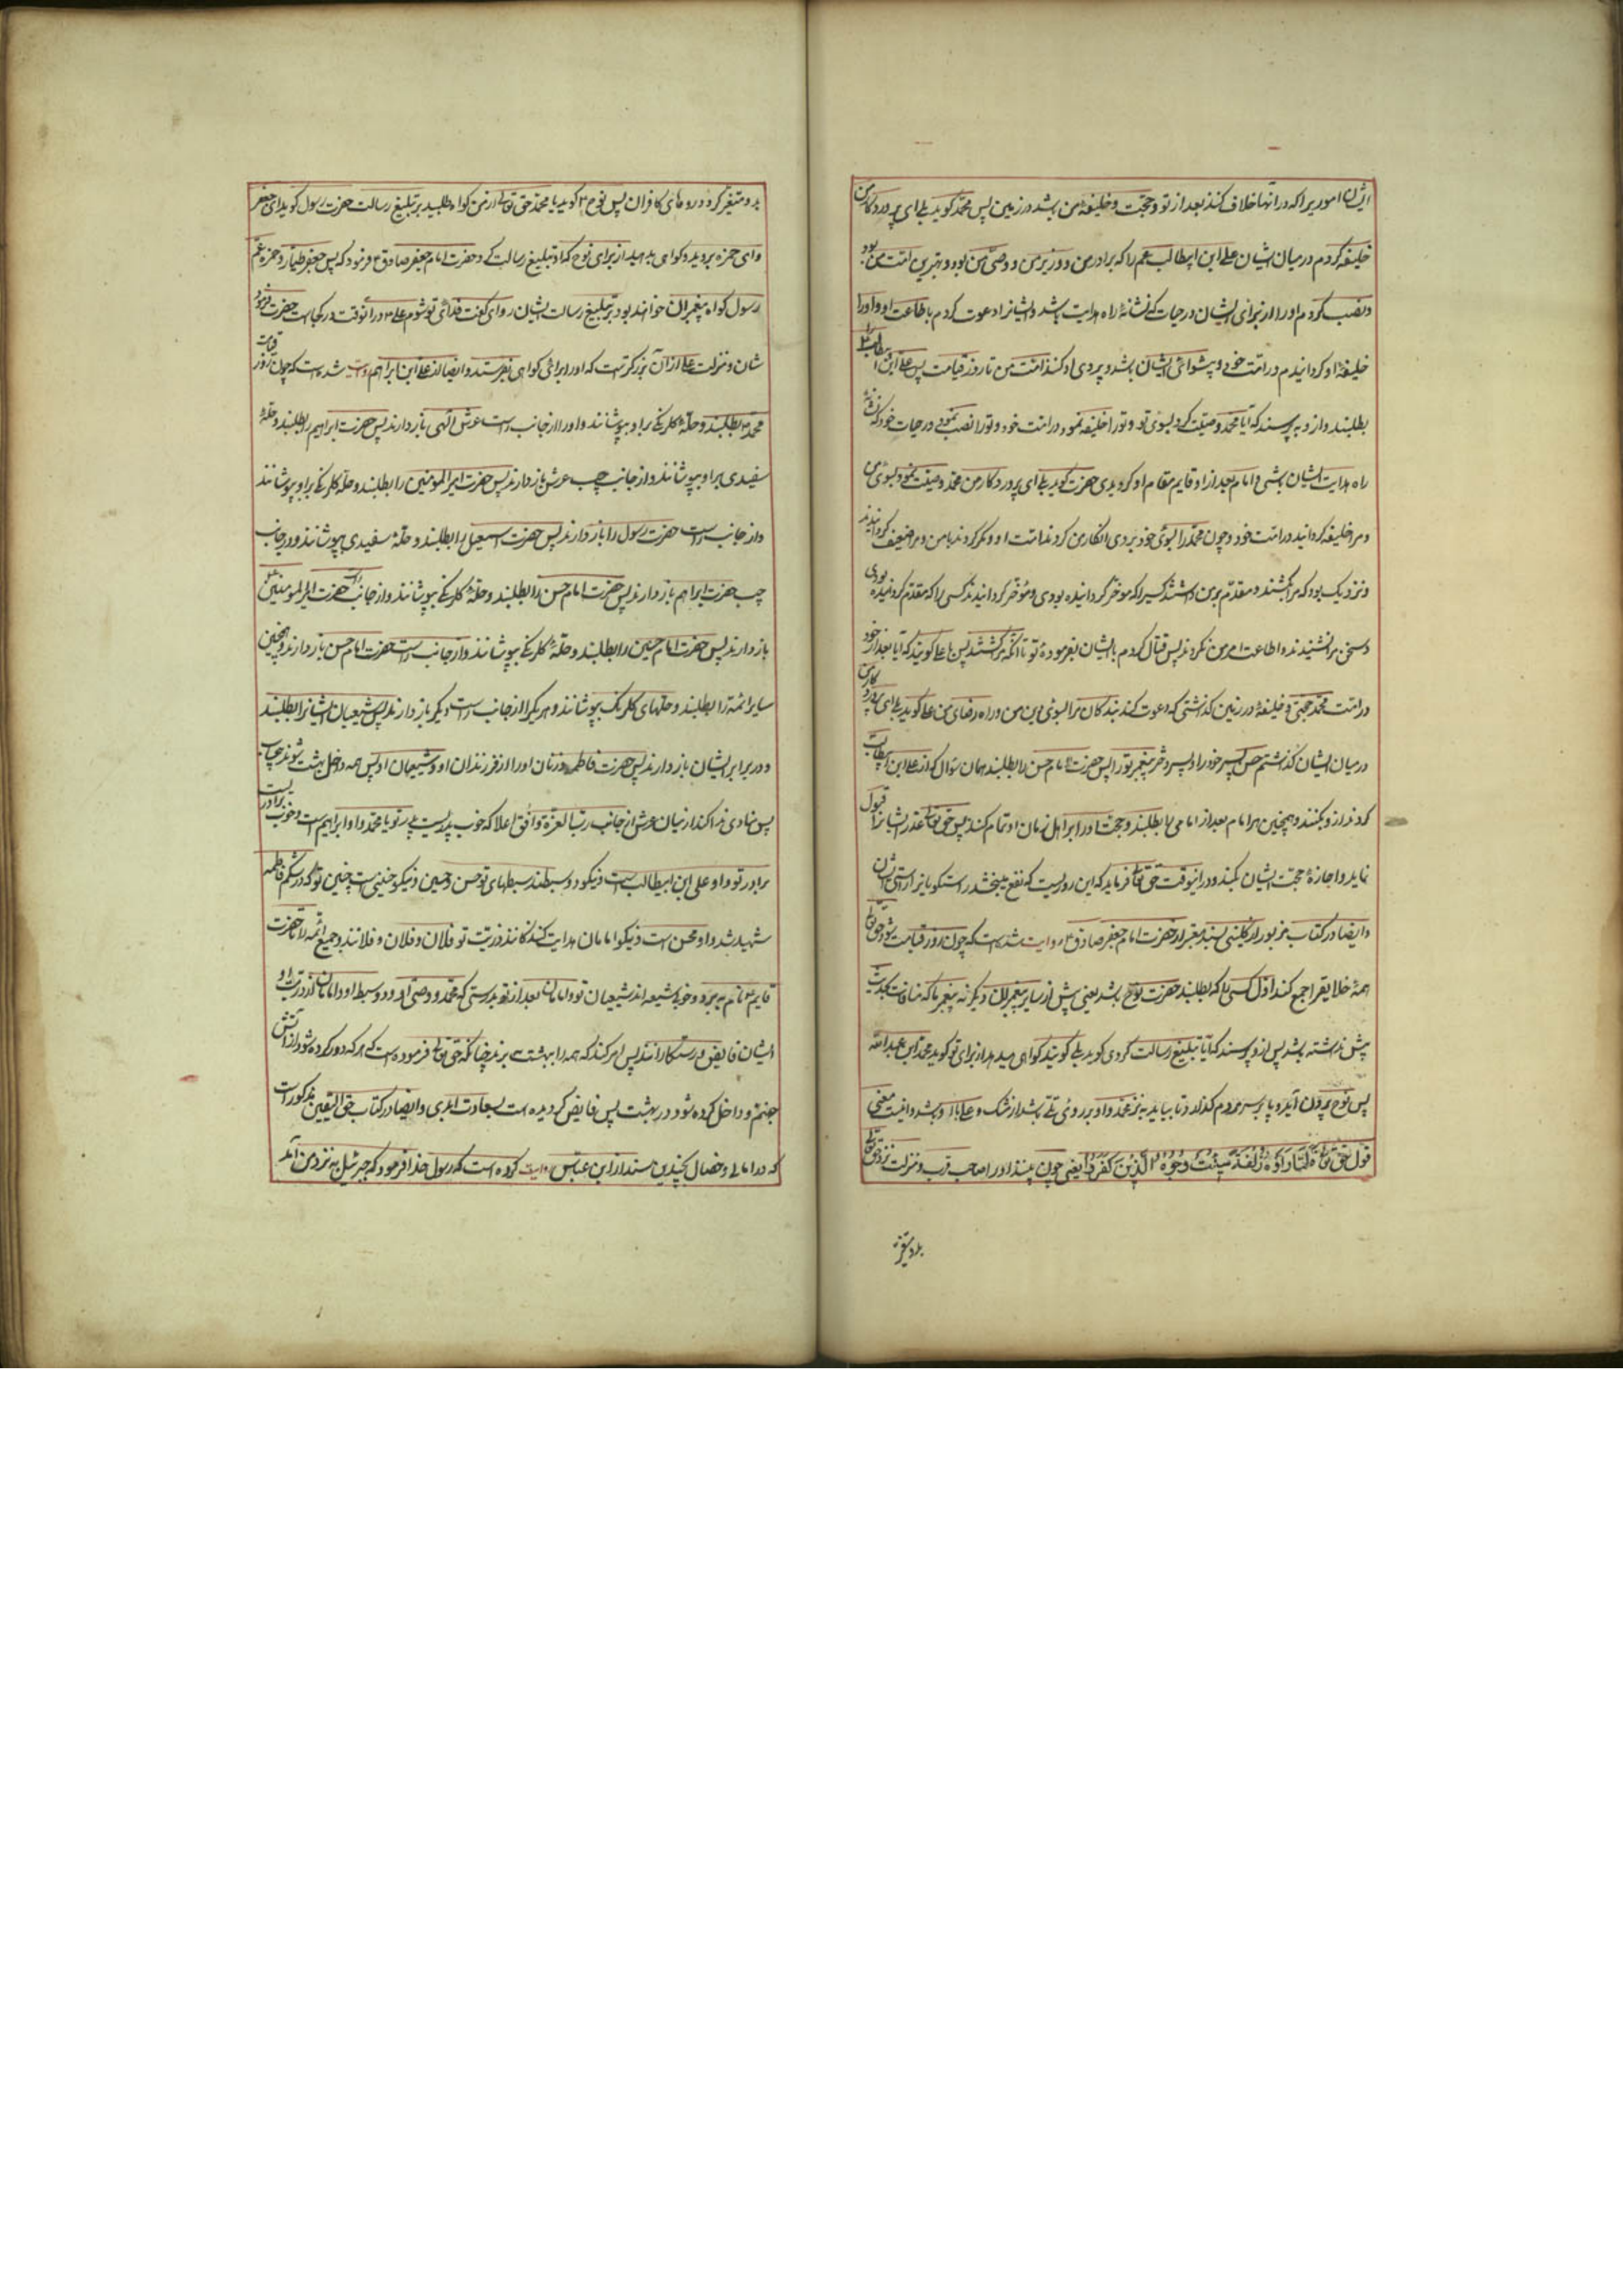 ایشان اموریرا که در انها خلاف کنند بعد از تو و حجت و خلیفهٔ من باشد در زمین پس محمد کوید بلی ای پروردکار من
خلیفه کردم در میان ایشان علی ابن ابیطالب عم را که برادر من و وزیر من و وصی من بود و بهترین امت من بود
و نصب کردم او را از برای ایشان در حیات که نشانهٔ راه هدایت باشد و ایشانرا دعوت کردم باطاعت او و او را
خلیفهٔ او کردانیدم در امت خود و پیشوائی ایشان باشد و پیروی او کنند امت من تا روز قیامت پس علی ابن ابیطالب را
بطلبند و از و به پرسند که آیا محمد وصیت کرد بسوی تو و تورا خلیفه نمود در امت خود و تورا نصب نمود در حیات خود که نشانهٔ
راه هدایت ایشان باشی و امام بعد از او قایم مقام او کردیدی حضرت کوید بلی ای پروردکار من محمد وصیت نمود بسوی من
و مرا خلیفه کردانید در امت خود و چون محمد را بسوی خود بردی انکار من کردند امت او و مکر کردند با من و مرا ضعیف کردانیدند
و نزدیک بود که مرا بکشند و مقدم بر من داشتند کسیرا که موخر کردانیده بودی و موخر کردانیدند کسی را که مقدم کردانیده بودی
و سخن مرا نشنیدند و اطاعت امر من نکردند پس قتال کردم با ایشان بفرمودهٔ تو تا انکه مرا کشتند پس با علی کویند که آیا بعد از خود
در امت محمد حجتی و خلیفهٔ در زمین کذاشتی که دعوت کند بندکان مرا بسوی دین من و راه رضای من علی کوید بلی ای پروردکار من
در میان ایشان کذاشتم حسن پسر خود را و پسر دختر پیغمبر تو را پس حضرت امام حسن را بطلبند همان سؤال که از علی ابن ابیطالب
کردند از و بکنند و همچنین هر امام بعد از امامی را بطلبند و حجت او را بر اهل زمان او تمام کنند پس حق تعالی عذر ایشانرا قبول
نماید و اجازهٔ حجت ایشان بکند و در انوقت حق تعالی فرماید که این روزیست که نفع میبخشد راستکویانرا راستی ایشان
و ایضا در کتاب مزبور از کلینی بسند معتبر از حضرت امام جعفر صادق ع روایت شده است که چون روز قیامت شود حق تعالی
همهٔ خلایقرا جمع کند اول کسی را که بطلبند حضرت نوح باشد یعنی پیش از سایر پیغمبران دیکر نه پیغمبر ما که منافات بحدیث
پیش نداشته باشد پس از و پرسند که آیا تبلیغ رسالت کردی کوید بلی کویند کواهی میدهد از برای تو کوید محمد ابن عبدالله
پس نوح بیرون آید و پا بر سر مردم کذارد تا بیاید به نزد محمد و او بر روی تلی باشد از مشک و علی با او باشد و اینست معنی
قول حق تعالی فَلَمَّا رَاَوْهُ زُلْفَةً سِیئَتْ وُجُوهُ الَّذِینَ کَفَرُوا یعنی چون بینند او را صاحب قرب و منزلت نزد حق تعالی
بد و متغیر
بد و متغیر کردد روهای کافران پس نوح ع کوید یا محمد حق تعالی از من کواه طلبید بر تبلیغ رسالت حضرت رسول کوید ای جعفر
و ای حمزه بروید و کواهی بدهید از برای نوح که او تبلیغ رسالت کرد حضرت امام جعفر صادق ع فرمود که پس جعفر طیار و حمزه عم
رسول کواه پیغمبران خواهند بود بر تبلیغ رسالت ایشان راوی کفت فدای تو شوم علی ع در انوقت در کجاست حضرت فرمود
شان و منزلت علی از آن بزرکتر است که او را برای کواهی بفرستند و ایضا از علی ابن ابراهیم روایت شده است که چون روز قیامت
محمد را بطلبند و حلهٔ کلرنکی بر او بپوشانند و او را از جانب راست عرش الهی بازدارند پس حضرت ابراهیم را بطلبند و حلهٔ
سفیدی بر او بپوشانند و از جانب چپ عرش بازدارند پس حضرت امیرالمومنین را بطلبند و حلهٔ کلرنکی بر او بپوشانند
و از جانب راست حضرت رسول را بازدارند پس حضرت اسمعیل را بطلبند و حلهٔ سفیدی بپوشانند و در جانب
چپ حضرت ابراهیم بازدارند پس حضرت امام حسن را بطلبند و حلهٔ کلرنکی بپوشانند و از جانب راست حضرت امیرالمومنین
بازدارند پس حضرت امام حسین را بطلبند و حلهٔ کلرنکی بپوشانند و از جانب راست حضرت امام حسن بازدارند و همچنین
سایر ائمه را بطلبند و حلهای کلرنک بپوشانند و هر یکرا از جانب راست دیکر بازدارند پس شیعیان ایشانرا بطلبند
و در برابر ایشان بازدارند پس حضرت فاطمه و زنان او را از فرزندان او و شیعیان او پس همه داخل بهشت شوند بیحساب
پس منادی ندا کند از میان عرش از جانب رب العزة و افق اعلا که خوب پدریست پدر تو یا محمد و او ابراهیم است و خوب برادریست
برادر تو و او علی ابن ابیطالب است و نیکو دو سبطند سبطهای تو حسن و حسین و نیکو جنینی است جنین تو که در شکم فاطمه
شهید شد و او محسن است و نیکو امامان هدایت کنندکانند ذریت تو فلان و فلان و فلانند و جمیع ائمه را تا حضرت
قایم ع نام به برد و خوب شیعه اند شیعیان تو و امامان بعد از تو بدرستی که محمد و وصی او و دو سبط او و امامان از ذریت او
ایشان فایض و رستکارانند پس امر کند که همه را ببهشت برند چنانکه حق تعالی فرموده است که هر که دور کرده شود از آتش
جهنم و داخل کرده شود در بهشت پس فایض کردیده است بسعادت ابدی و ایضا در کتاب حق الیقین مذکور است
که در امالی و خصال بچندین سند از ابن عباس روایت کرده است که رسول خدا فرمود که جبرئیل به نزد من آمد